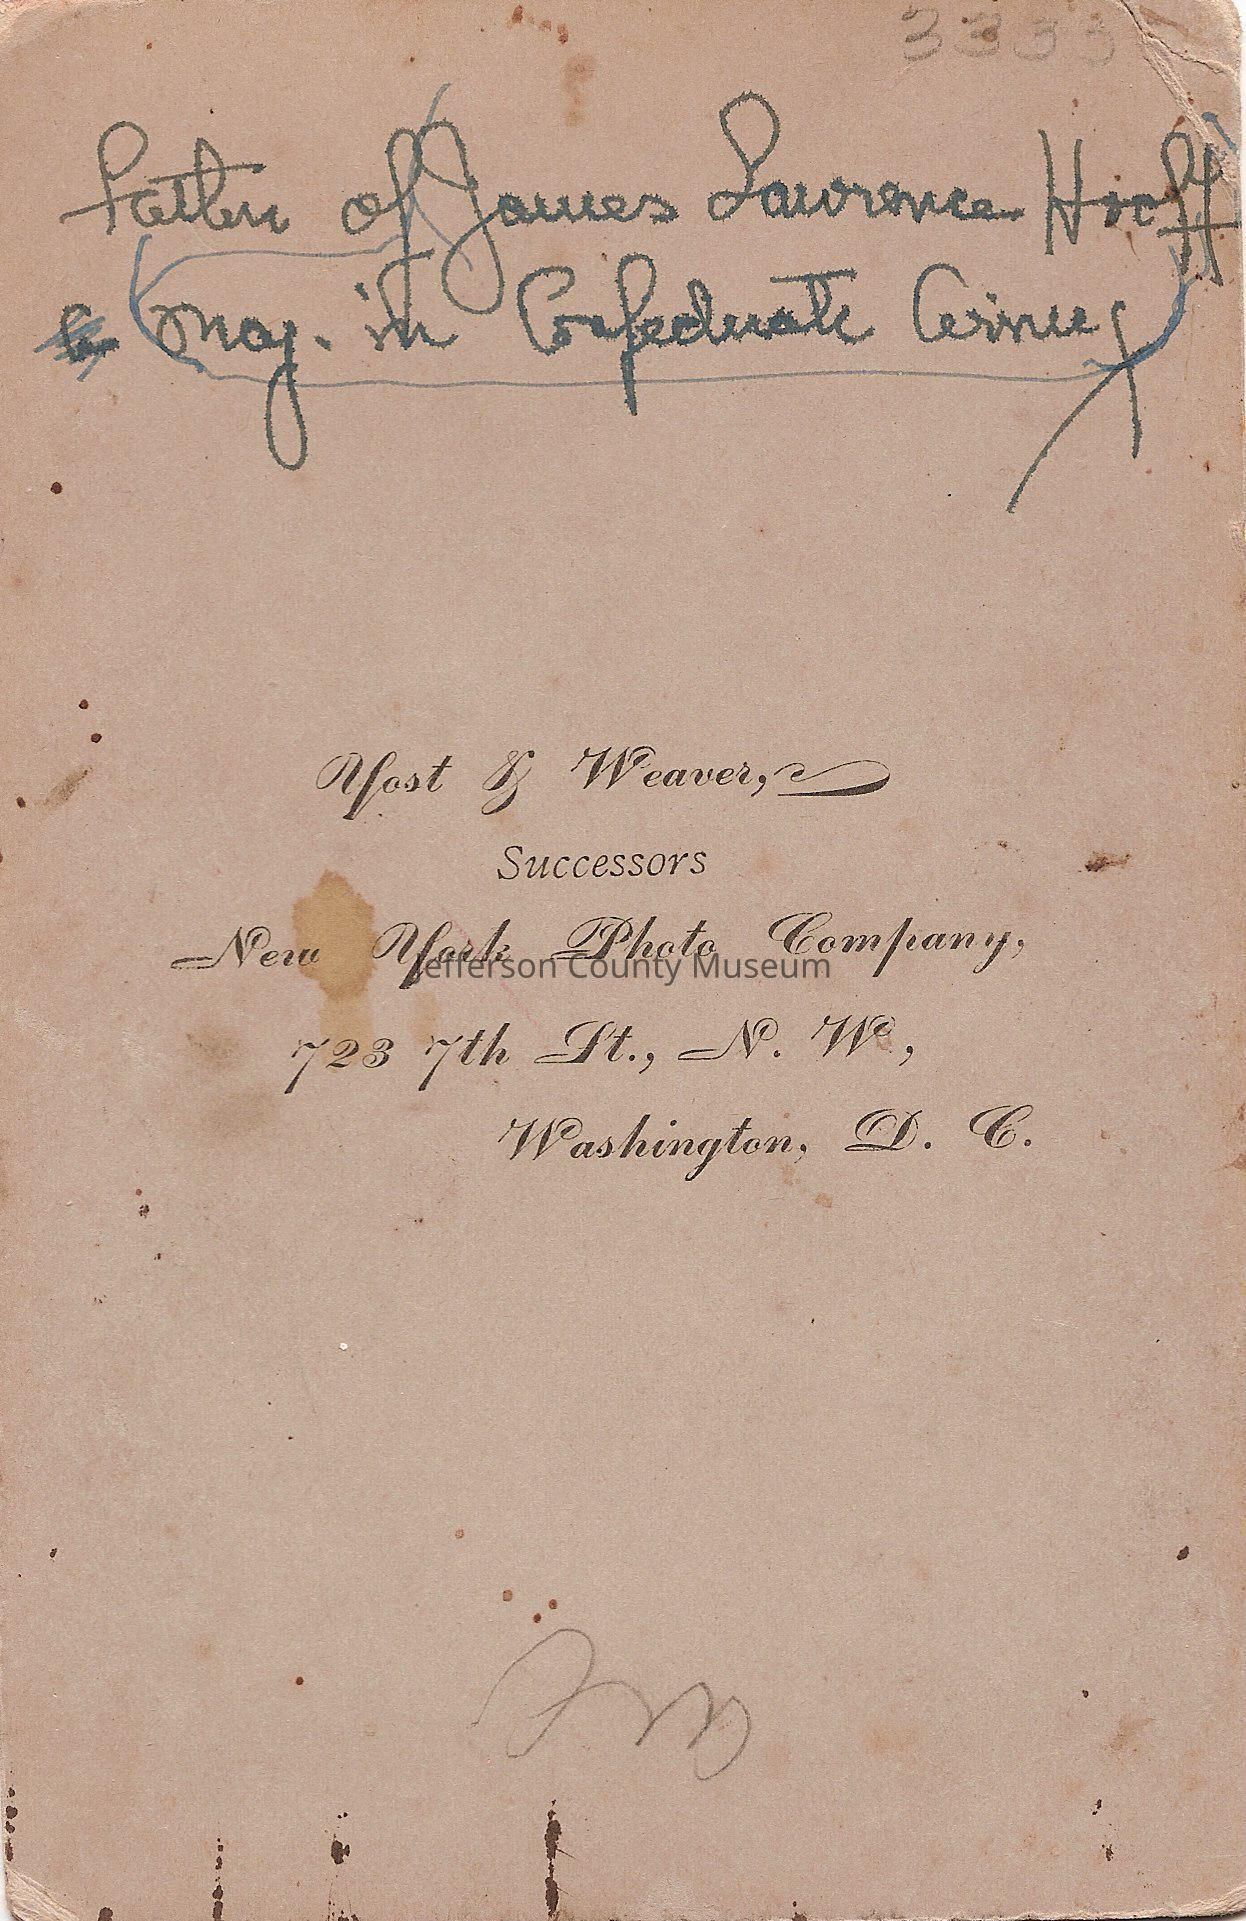 3333
Father of James Lawrence Hooff
a Maj. in Confederate Army
Yost & Weaver,
Successors
New York Photo Company,
Jefferson County Museum
723 7th St., N. W.,
Washington, D. C.